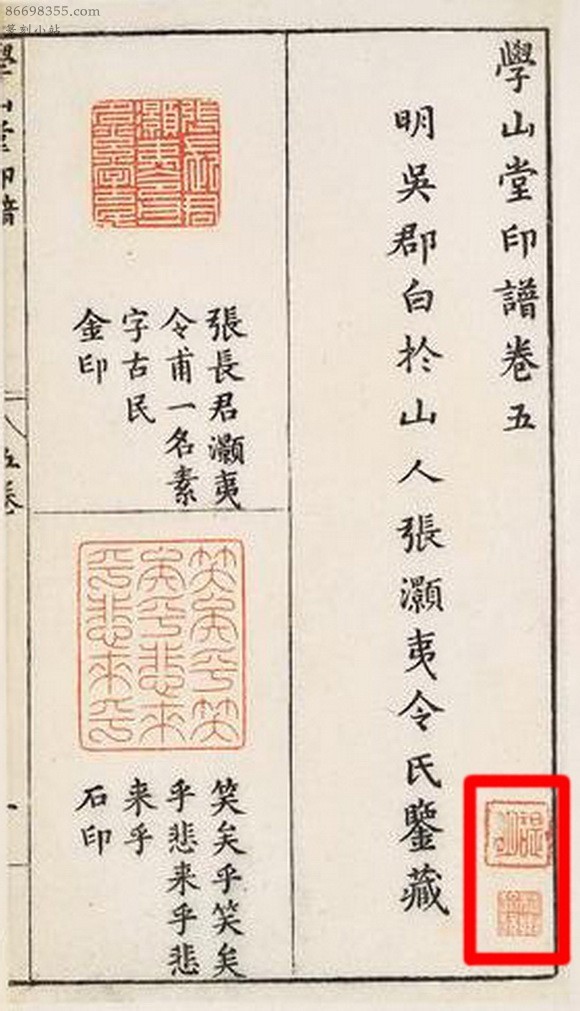 86698355.com
篆刻小站
學山堂印譜卷五
明吳郡白於山人張灝夷令氏鑒藏
張長君灝夷
令甫一名素
字古民
金印
笑矣乎笑矣
乎悲来乎悲
来乎
石印
學山堂印譜